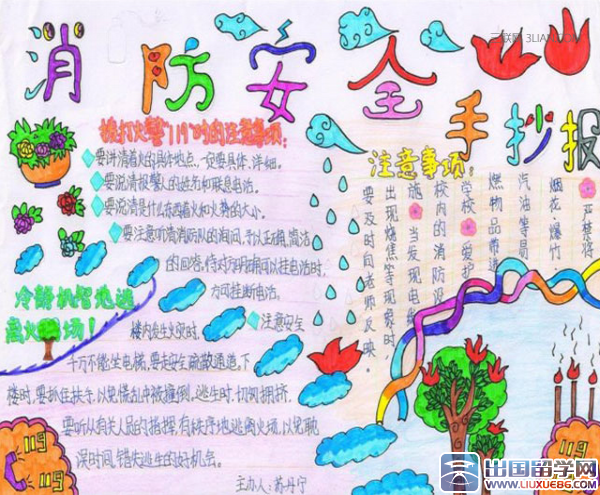 消防安全
手抄报
三联网 3LIAN.COM
拨打火警119时的注意事项:
要讲清着火的具体地点,一定要具体、详细。
要说清报警人的姓名和联系电话。
要说清是什么东西着火和火势的大小。
要注意听清消防队的询问,予以正确,简洁
的回答,待对方明确可以挂电话时,
方可挂断电话。
注意事项:
严禁将
烟花、爆竹、
汽油等易
燃物品带进
学校 爱护
校内的消防设
施 当发现电线
出现烧焦等现象时
要及时向老师反映。
冷静机智地逃
离火场!
注意安全
楼内发生火灾时,
千万不能坐电梯,要走安全疏散通道。下
楼时,要抓住扶手,以免慌乱中被撞倒。逃生时,切勿拥挤,
要听从有关人员的指挥,有秩序地逃离火场,以免耽
误时间,错失逃生的好机会。
主办人:苏丹宁
119
119
119
119
出国留学网
WWW.LIUXUE86.COM